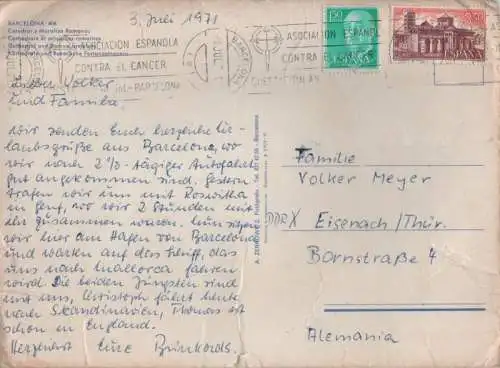 3. Juli 1971
BARCELONA
Catedral y Murallas Romanas
ASOCIACION ESPAÑOLA
CONTRA EL CANCER
BARCELONA
BARCELONA
ASOCIACION ESPAÑOLA
CONTRA EL
1'50
Lieber Volker
und Familie.
Wir senden Euch herzliche Ur-
laubsgrüße aus Barcelona, wo
wir nach 2 ½-tägiger Autofahrt
gut angekommen sind. Gestern
trafen wir uns mit Roswitha
in Genf, wo wir 2 Stunden mit
ihr zusammen waren. Nun sitzen
wir hier am Hafen von Barcelona
und warten auf das Schiff, das
uns nach Mallorca fahren
wird. Die beiden Jüngsten sind
mit uns, Christoph fährt heute
nach Skandinavien, Thomas ist
schon in England.
Herzlichst Eure Brinkords.
Familie
Volker Meyer
DDR X Eisenach/Thür.
Bornstraße 4
Alemania